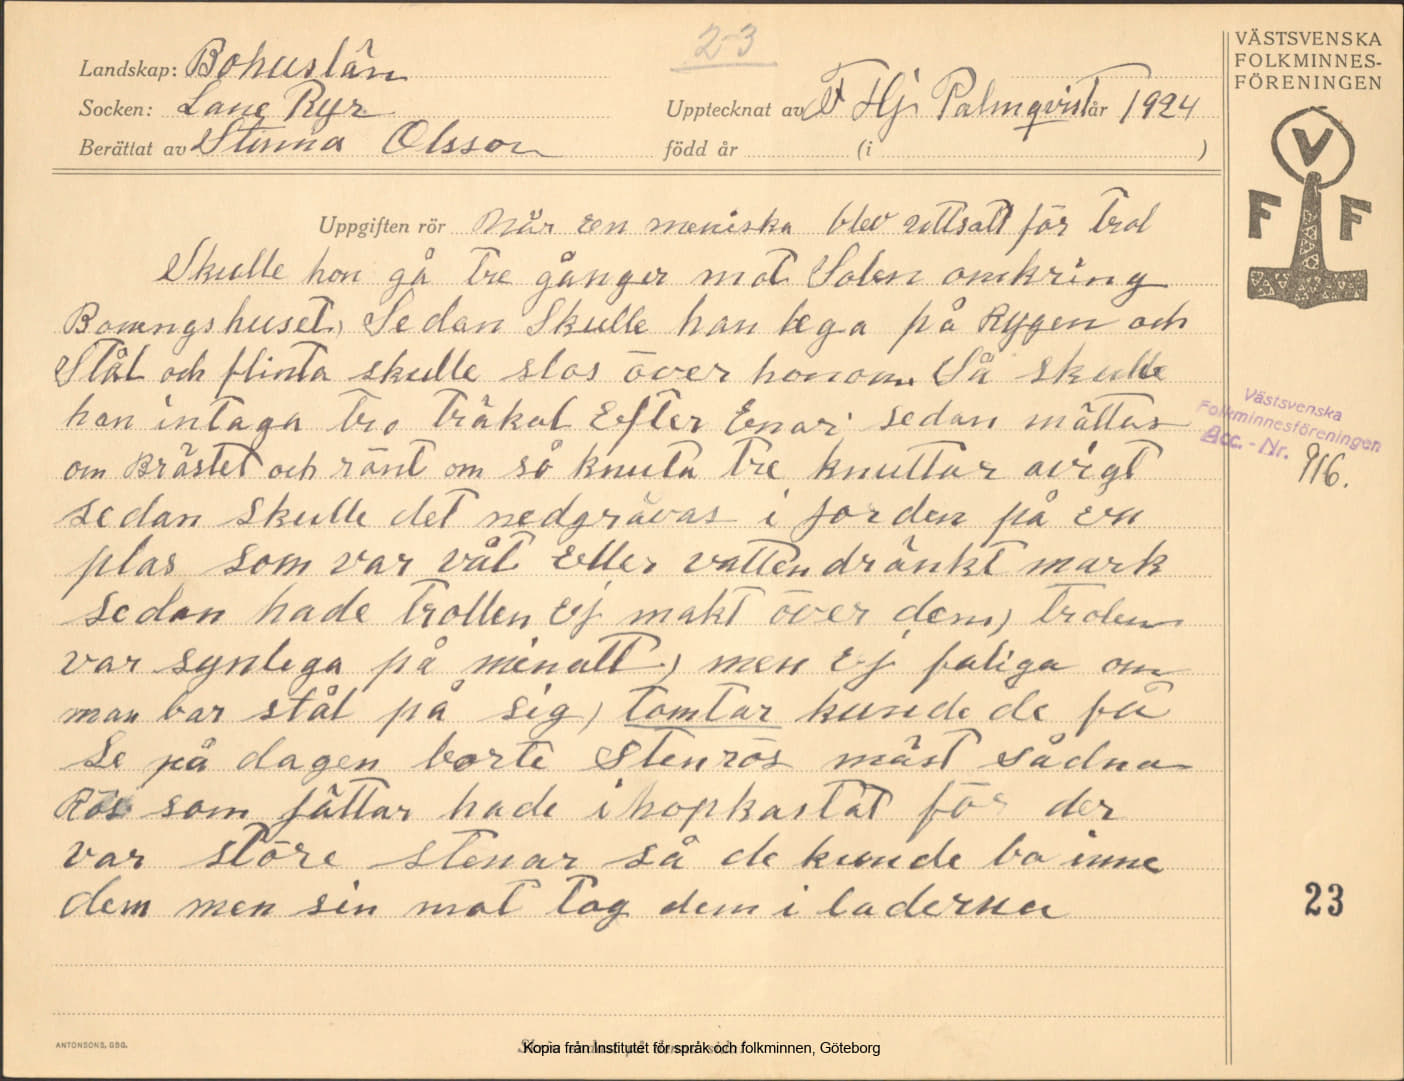 2-3
Landskap: Bohuslän
Socken: Lane Ryr
Berättat av Stinna Olsson
Upptecknat av F Hj Palmqvist år 1924
född år (i )
VÄSTSVENSKA
FOLKMINNES-
FÖRENINGEN
V
F F
Uppgiften rör När en meniska blev uttsatt för trol
Skulle hon gå tre gånger mot Solen omkring
Boningshuset, Sedan Skulle han lega på Rygen och
Stål och flinta skulle slos över honom. Så skulle
han intaga tre träkol Efter Enar sedan mättas
om Bröstet och runt om så knuta tre knuttar avigt
sedan skulle det nedgrävas i jorden på en
plas som var våt Eller vattendränkt mark
sedan hade trollen Ej makt över dem, trolen
var synlega på minatt, men Ej faliga om
man bar stål på sig, tomtar kunde de få
Se på dagen borte Stenrös mäst sådna
Rös som jättar hade ihopkastat för der
var störe stenar så de kunde bo inne
dem men sin mat tog dem i laderna
Västsvenska
Folkminnesföreningen
Acc.-Nr. 916.
23
ANTONSONS, GBG.
Kopia från Institutet för språk och folkminnen, Göteborg